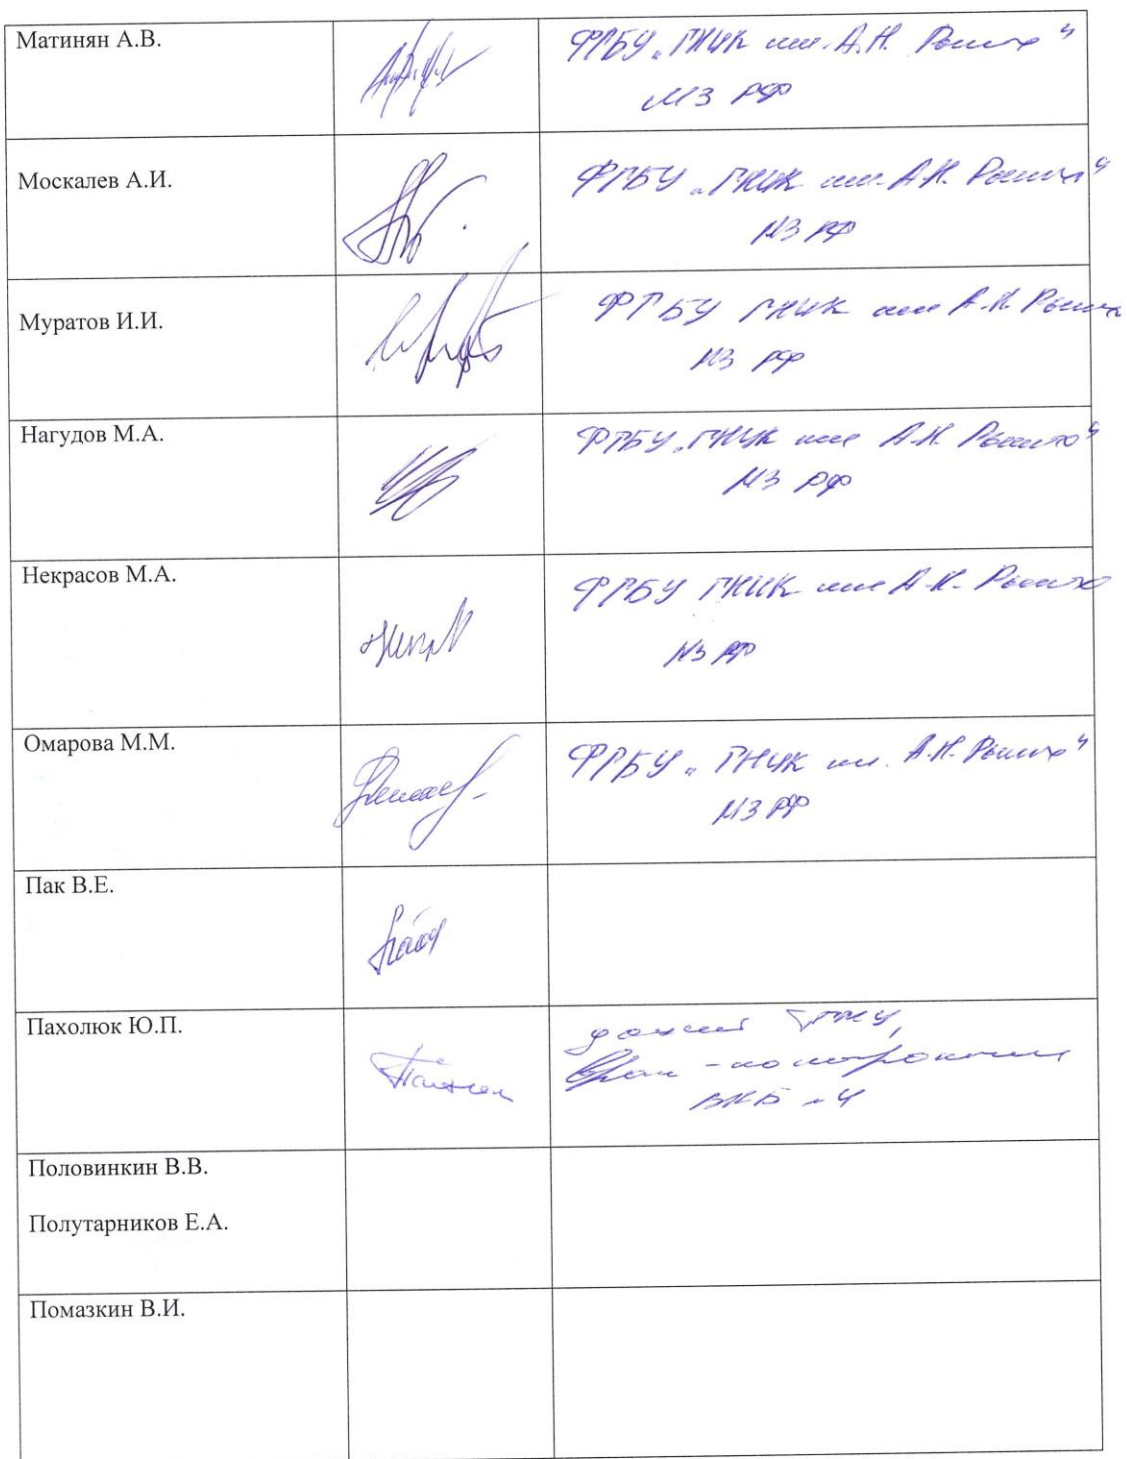 Матинян А.В.
ФГБУ „ГНЦК им. А.Н. Рыжих“
МЗ РФ
Москалев А.И.
ФГБУ „ГНЦК им. А.Н. Рыжих“
МЗ РФ
Муратов И.И.
ФГБУ ГНЦК им А.Н. Рыжих
МЗ РФ
Нагудов М.А.
ФГБУ „ГНЦК им А.Н. Рыжих“
МЗ РФ
Некрасов М.А.
ФГБУ ГНЦК им А.Н. Рыжих
МЗ РФ
Омарова М.М.
ФГБУ „ГНЦК им. А.Н. Рыжих“
МЗ РФ
Пак В.Е.
Пахолюк Ю.П.
доцент
Врач-колопроктолог
Половинкин В.В.
Полутарников Е.А.
Помазкин В.И.